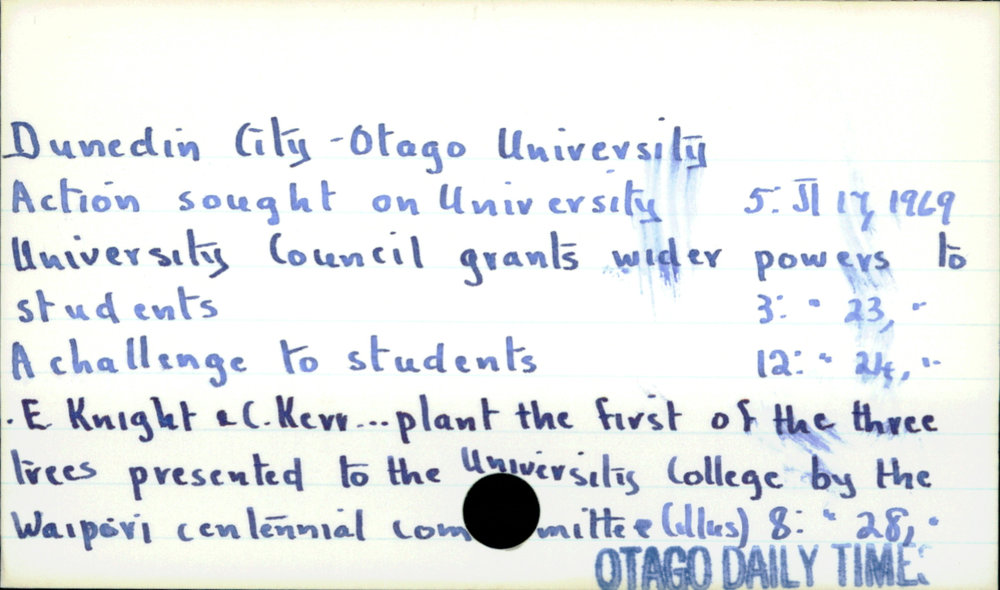 Dunedin City - Otago University
Action sought on University 5: JI 17, 1969
University Council grants wider powers to
students 3: " 23, "
A challenge to students 12: " 24, "
. E. Knight & C. Kerr... plant the first of the three
trees presented to the University College by the
Waipori centennial committee (illus) 8: " 28, "
OTAGO DAILY TIMES